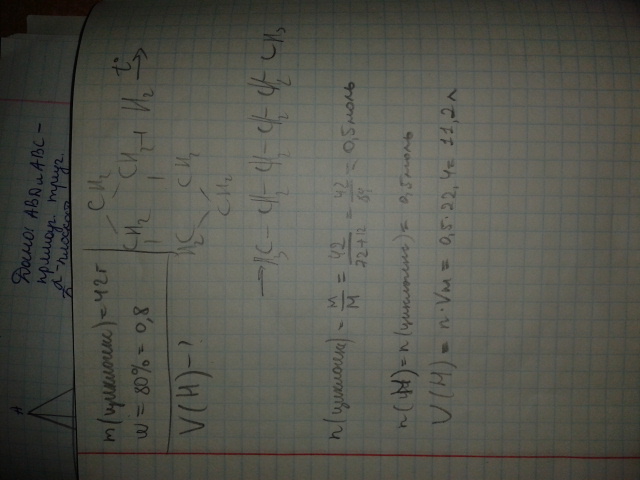 A
Дано: ABD и ABC -
прямоуг. треуг.
α - плоскость
m(циклогекс) = 42г
w = 80% = 0,8
V(H) - ?
CH2
CH2 CH2 + H2 t° →
H2C CH2
CH2
→ H3C - CH2 - CH2 - CH2 - CH2 - CH3
n(циклогекс) = m/M = 42/72+12 = 42/84 = 0,5 моль
n(H) = n(циклогекс) = 0,5 моль
V(H) = n·Vм = 0,5·22,4 = 11,2 л